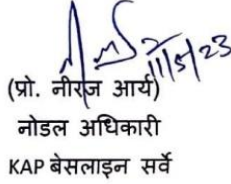 11/5/23
(प्रो. नीरज आर्य)
नोडल अधिकारी
KAP बेसलाइन सर्वे